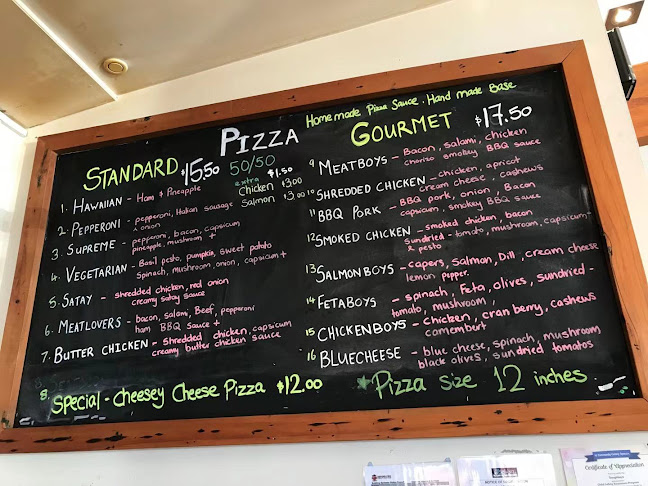 Home made Pizza Sauce . Hand made Base
PIZZA
STANDARD $15.50
50/50
extra $1.50
Chicken $3.00
Salmon $3.00
1. HAWAIIAN - Ham & Pineapple
2. PEPPERONI - pepperoni, Italian sausage
& onion
3. SUPREME - pepperoni, bacon, capsicum
pineapple, mushroom +
4. VEGETARIAN - Basil pesto, pumpkin, sweet potato
Spinach, mushroom, onion, capsicum +
5. SATAY - shredded chicken, red onion
creamy satay sauce
6. MEATLOVERS - bacon, salami, Beef, pepperoni
ham BBQ Sauce +
7. BUTTER CHICKEN - Shredded chicken, capsicum
creamy butter chicken sauce
8. Special - cheesey Cheese Pizza $12.00
GOURMET $17.50
9 MEATBOYS - Bacon, salami, chicken
chorizo smokey BBQ sauce
10 SHREDDED CHICKEN - chicken, apricot
cream cheese, cashews
11 BBQ PORK - BBQ pork, onion, Bacon
capsicum, smokey BBQ sauce
12 SMOKED CHICKEN - smoked chicken, bacon
sundried - tomato, mushroom, capsicum -
& pesto
13 SALMONBOYS - capers, Salmon, Dill, cream cheese
lemon pepper.
14 FETABOYS - spinach, Feta, olives, sundried -
tomato, mushroom,
15 CHICKENBOYS - chicken, cranberry, cashews
camembert
16 BLUECHEESE - blue cheese, spinach, mushroom
black olives, sundried tomatos
*Pizza size 12 inches
Certificate of Appreciation